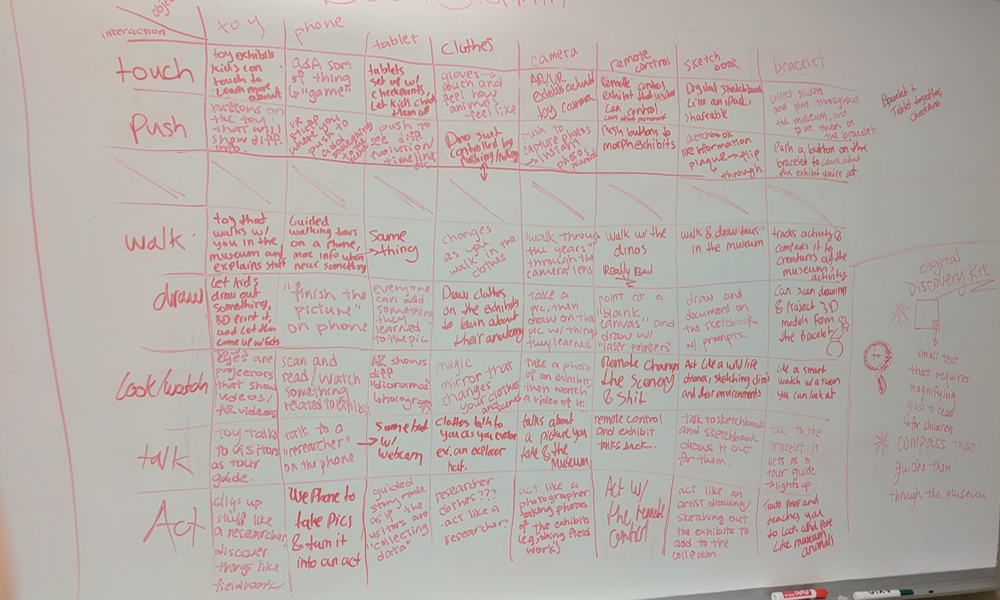 object
interaction
toy
phone
tablet
clothes
camera
remote
control
sketch
book
bracelet
touch
toy exhibits
kids can
touch to
Learn more
about
Q&A sort
of thing
"game"
tablets
set up w/
checkpoints,
Let kids check
them all
gloves →
touch and
feel how
animals
feel like
AR/VR
Exhibits cultural
toy camera
Remote control
exhibit that visitor
can control
Digital sketchbook
Like an iPad,
shareable
collect stickers
and pins throughout
the museum, and
put them on
the bracelet
Bracelet +
Tablet together,
checkpoints
Push
buttons on
the toy
that will
show diff.
info.
push to
add
something
to the
push to
see diff.
evolution/
timeline
Dino suit
controlled by
pushing/pulling
push to
capture photos
→ instant
photos
Push buttons to
morph exhibits
sketchbook
like information
plaque → flip
through
Push a button on the
bracelet to learn about
the exhibit you're at
walk
toy that
walks w/
you in the
museum and
explains stuff
Guided
walking tours
on a phone,
more info when
near something
Same
thing
changes
as you
walk in the
clothes
"walk through
the years"
through the
camera lens
walk w/ the
dinos
Really Bad
walk & draw tours
in the museum
tracks activity &
compares it to
creatures at the
museum's
activity
draw
Let kids
draw out
something,
3D Print it,
and Let them
come up w/ facts
"finish the
picture"
on phone
everyone
can add
something
they learned
to the pic
Draw clothes
on the exhibits
to learn about
their anatomy
take a
pic, then
draw on the
pic w/ things
they learned
point at a
"blank
canvas" and
draw w/
"laser pointers"
draw and
document on
the sketchbook
w/ prompts.
Can scan drawings
& Project 3D
models from
the bracelet
look/watch
eyes are
projectors
that show
videos/
AR videos
scan and
read/watch
something
related to exhibit
AR shows
diff
"dioramas"
magic
mirror that
changes
your clothes
take a photo
of an exhibit,
then watch
a video of it.
Remote Changes
the Scenery
& Shit
Act like a wild life
observer, sketching dinos
and their environments
Like a smart
watch w/ screen
you can look at
talk
toy talks
to visitors
as tour
guide.
talk to a
"researcher"
on the phone
w/
webcam
clothes talk to
you as you explore
ex. an explorer
hat.
talks about
a picture you
take @ the
Museum
remote control
and exhibit
talks back...
Talk to sketchbook
and sketchbook
draws it out
for them.
talk to the
bracelet, it
acts as a
tour guide
→ lights up
Act
digs up
stuff like
a researcher,
discover
things like
fieldwork
Use Phone to
take Pics
& turn it
into an act
guided
story mode
as if the
visitors are
"collecting
data"
researcher
clothes???
-act like a
researcher
act like a
photographer
taking photos
of the exhibits
(e.g. doing field
work)
Act w/
the remote
control
act like an
artist drawing/
sketching out
the exhibits to
add to the
collection
poses and
teaches you
to Look and Pose
Like museum
animals
digital
Discovery Kit
small text
that requires
magnifying
glass to read
↳ for children
compass that
guides them
through the museum